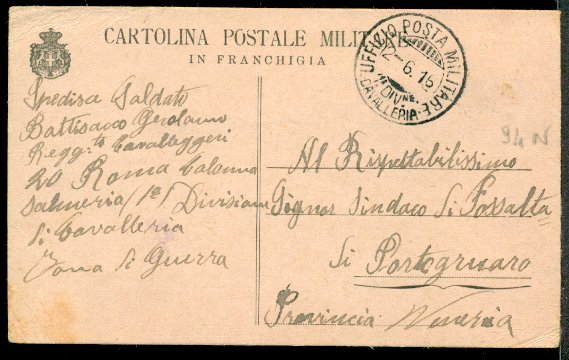 CARTOLINA POSTALE MILITARE
IN FRANCHIGIA
UFFICIO POSTA MILITARE
2-6.15
1ª DIVNE. CAVALLERIA
94 N
Spedisce Soldato
Battisacco Gerolamo
Regg.to Cavalleggeri
20 Roma Colonna
Salmeria/1a/Divisione
di Cavalleria
Zona di Guerra
Al Rispettabilissimo
Signor Sindaco di Fossalta
di Portogruaro
Provincia Venezia